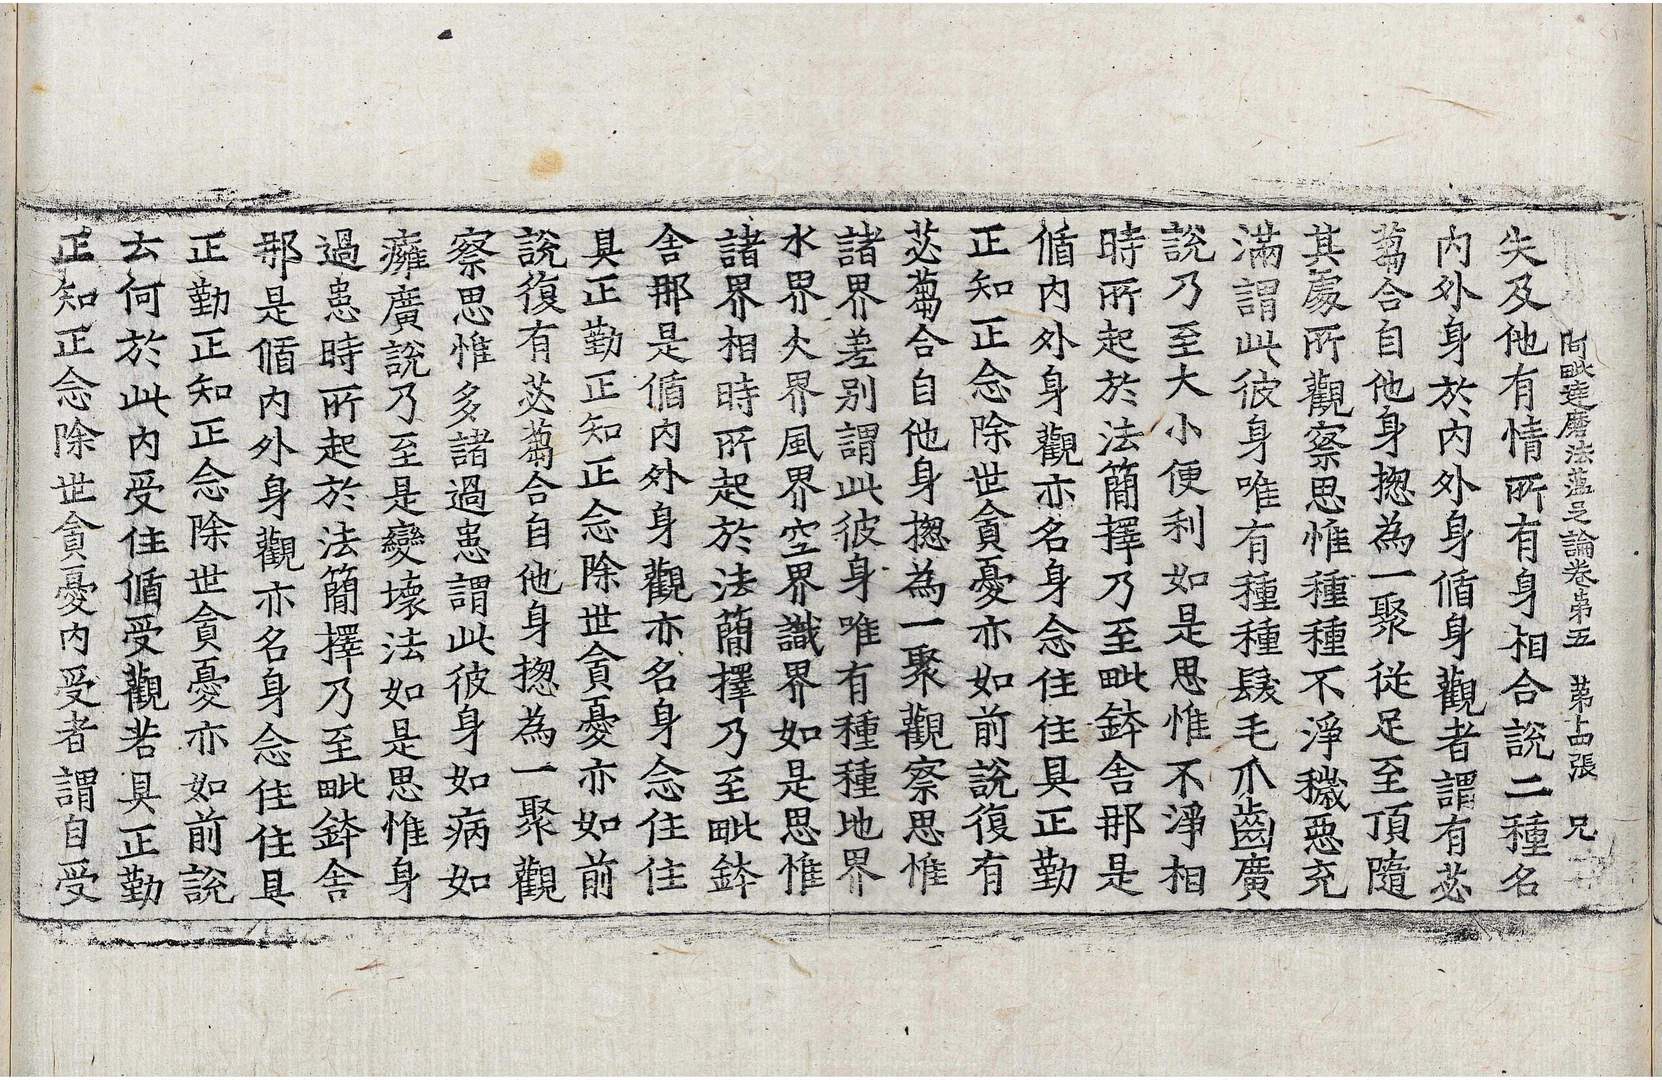 阿毗達磨法蘊足論卷第五 第十四張 兄
失及他有情所有身相合說二種名
內外身於內外身循身觀者謂有苾
蒭合自他身揔為一聚從足至頂隨
其處所觀察思惟種種不淨穢惡充
滿謂此彼身唯有種種髮毛爪齒廣
說乃至大小便利如是思惟不淨相
時所起於法簡擇乃至毗鉢舍那是
循內外身觀亦名身念住住具正勤
正知正念除世貪憂亦如前說復有
苾蒭合自他身揔為一聚觀察思惟
諸界差別謂此彼身唯有種種地界
水界火界風界空界識界如是思惟
諸界相時所起於法簡擇乃至毗鉢
舍那是循內外身觀亦名身念住住
具正勤正知正念除世貪憂亦如前
說復有苾蒭合自他身揔為一聚觀
察思惟多諸過患謂此彼身如病如
癰廣說乃至是變壞法如是思惟身
過患時所起於法簡擇乃至毗鉢舍
那是循內外身觀亦名身念住住具
正勤正知正念除世貪憂亦如前說
云何於此內受住循受觀若具正勤
正知正念除世貪憂內受者謂自受